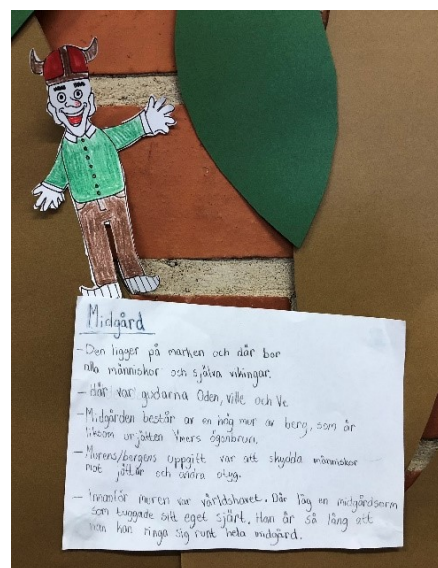 Midgård
- Den ligger på marken och där bor
alla människor och själva vikingar.
- där var gudarna Oden, ville och Ve
- Midgården består av en hög mur av berg, som är
liksom ur jötten Ymers ögonbrun.
- Murens/bergens uppgift var att skydda människor
mot jättar och andra otyg.
- Innanför muren var världshavet. Där låg en midgårdsorm
som tuggade sitt eget stjärt. Han är så lång att
han kan ringa sig runt hela midgård.